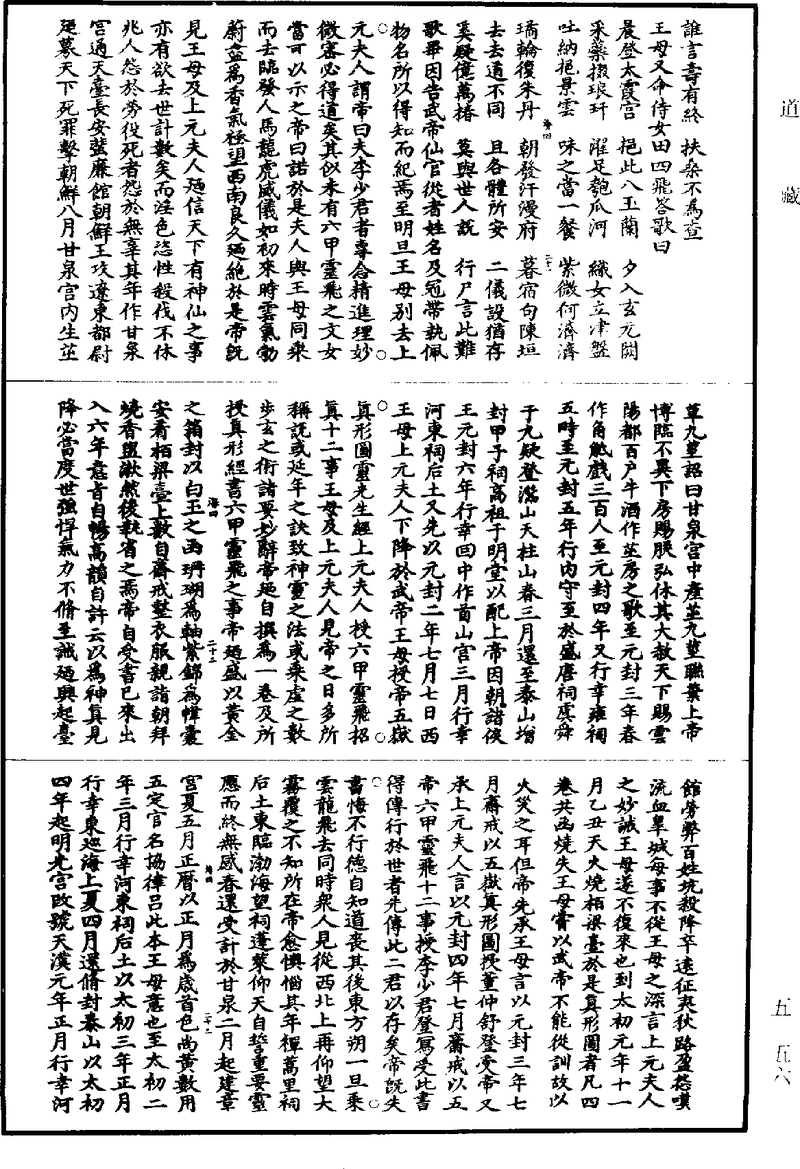 道藏
誰言壽有終　扶桑不為查
王母又命侍女田四飛答歌曰
晨登太霞宮　挹此八玉蘭　夕入玄元闕
采藥掇琅玕　濯足匏瓜河　織女立津盤
吐納挹景雲　味之當一餐　紫微何濟濟
璚輪復朱丹　朝發汗漫府　暮宿句陳垣
去去道不同　且各體所安　二儀設猶存
奚疑億萬椿　莫與世人說　行尸言此難
歌畢因告武帝仙官從者姓名及冠帶執佩
物名所以得知而紀焉至明旦王母別去上
元夫人謂帝曰夫李少君者專念精進理妙
微密必得道矣其似未有六甲靈飛之文女
當可以示之帝曰諾於是夫人與王母同乘
而去臨發人馬龍虎威儀如初來時雲氣勃
蔚盡為香氣極望西南良久廼絕於是帝既
見王母及上元夫人廼信天下有神仙之事
亦有欲去世計數矣而淫色恣性殺伐不休
兆人怨於勞役死者怨於無辜其年作甘泉
宮通天臺長安蜚廉館朝鮮王攻遼東都尉
廼募天下死罪擊朝鮮八月甘泉宮內生芝
草九莖詔曰甘泉宮中產芝九莖聯葉上帝
博臨不異下房賜朕弘休其大赦天下賜雲
陽都百戶牛酒作芝房之歌至元封三年春
作角觝戲三百人至元封四年又行幸雍祠
五畤至元封五年行內守至於盛唐祠虞舜
于九疑登灊山天柱山春三月還至泰山增
封甲子祠高祖于明堂以配上帝因朝諸侯
王元封六年行幸回中作首山宮三月行幸
河東祠后土又先以元封二年七月七日西
王母上元夫人下降於武帝王母授帝五嶽
真形圖靈光生經上元夫人授六甲靈飛招
真十二事王母及上元夫人見帝之日多所
稱說或延年之訣致神靈之法或乘虛之數
步玄之術諸要妙辭帝廼自撰為一卷及所
授真形經書六甲靈飛之事帝廼盛以黃金
之箱封以白玉之函珊瑚為軸紫錦為幃囊
安着栢梁臺上數自齋戒整衣服親詣朝拜
燒香盥漱然後執省之焉帝自受書已來出
入六年意旨自暢高韻自許云以為神真見
降必當度世強悍氣力不脩至誡廼興起臺
館勞弊百姓坑殺降卒遠征夷狄路盈怨嘆
流血皐城每事不從王母之深言上元夫人
之妙誡王母遂不復來也到太初元年十一
月乙丑天火燒栢梁臺於是真形圖者凡四
卷共函燒失王母當以武帝不能從訓故以
火災之耳但帝先承王母言以元封三年七
月齋戒以五嶽真形圖授董仲舒登受帝又
承上元夫人言以元封四年七月齋戒以五
帝六甲靈飛十二事授李少君登寫受此書
得傳行於世者先傳此二君以存矣帝既失
書悔不行德自知道喪其後東方朔一旦乘
雲龍飛去同時衆人見從西北上再仰望大
霧覆之不知所在帝愈懊惱其年禪蒿里祠
后土東臨渤海望祠蓬萊仰天自誓重要靈
應而終無感春還受計於甘泉二月起建章
宮夏五月正曆以正月為歲首色尚黃數用
五定官名協律呂此本王母意也至太初二
年三月行幸河東祠后土以太初三年正月
行幸東巡海上夏四月還脩封泰山以太初
四年起明光宮改號天漢元年正月行幸河
海四　二十一
海四　二十二
海四　二十三
五　五六